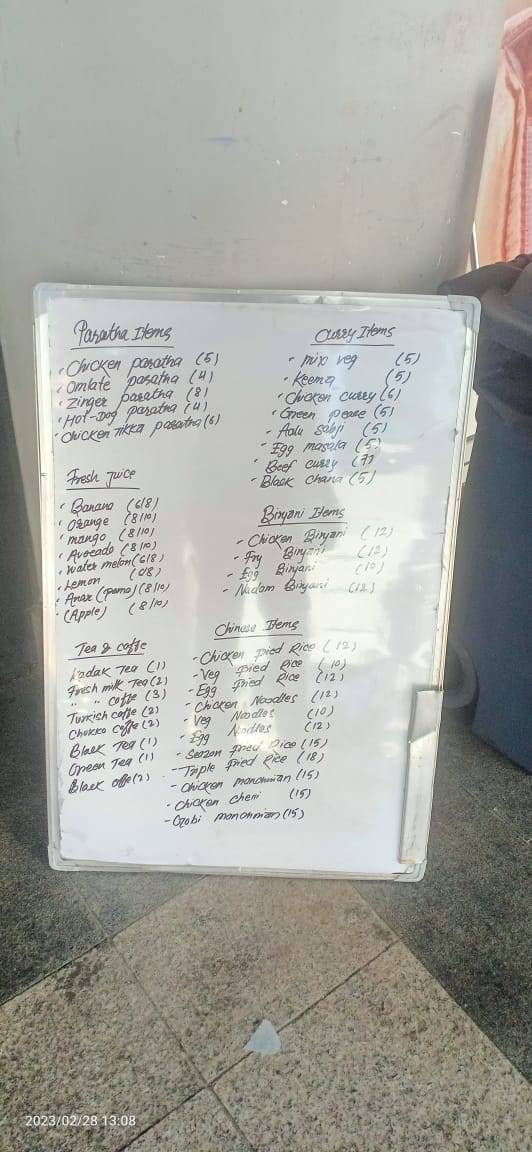 Paratha Items
Chicken paratha (5)
Omlate paratha (4)
Zinger paratha (8)
Hot-Dog paratha (4)
Chicken Tikka paratha (6)
Fresh Juice
Banana (6/8)
Orange (8/10)
mango (8/10)
Avocado (8/10)
Water melon (6/8)
Lemon (6/8)
Anar (pomo) (8/10)
(Apple) (8/10)
Tea & coffe
Kadak Tea (1)
Fresh milk Tea (2)
" " coffe (3)
Turkish coffe (2)
Chukko coffe (2)
Black Tea (1)
Green Tea (1)
Black offe (2)
Curry Items
mix veg (5)
Keema (5)
Chicken curry (6)
Green pease (5)
Aalu sabji (5)
Egg masala (5)
Beef curry (7)
Black chana (5)
Biryani Items
Chicken Biryani (12)
Fry Biryani (12)
Egg Biryani (10)
Nadam Biryani (12)
Chinese Items
Chicken fried Rice (12)
Veg fried Rice (10)
Egg fried Rice (12)
Chicken Noodles (12)
Veg Noodles (10)
Egg Noodles (12)
Seazon fried Rice (15)
Triple fried Rice (18)
Chicken manchurian (15)
Chicken cheni (15)
Gobi manchurian (15)
2023/02/28 13:08